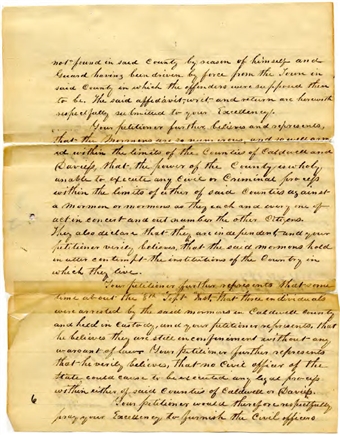 not found in said County by reason of himself and
Guard having been driven by force from the Town in
said County in which the offenders were supposed then
to be. The said affidavit, writ and return are herewith
respectfully submitted to your Excellency.
Your petitioner further believes and represents
that the Mormons are so numerous and so well arm
ed within the limits of the Counties of Caldwell and
Daviess, that the power of the County is wholy
unable to execute any Civil or Criminal process
within the limits of either of said Counties against
a Mormon or mormons as they each and every one of
act in concert and out number the other Citizens.
They also declare that they are independent and your
petitioner verily believes, that the said mormons hold
in utter contempt the institutions of the Country in
which they live.
Your petitioner further represents that some
time about the Sept Inst, that three individuals
were arrested by the said mormons in Caldwell County
and held in custody, and your petitioner represents that
he believes they are still in confinement without any
warrant of law. Your petitioner further represents
that he verily believes, that no Civil officer of the
State could cause to be executed any legal process
within either of said Counties of Caldwell or Daviess.
Your petitioner would therefore respectfully
pray your Excellency to furnish the Civil officers
6